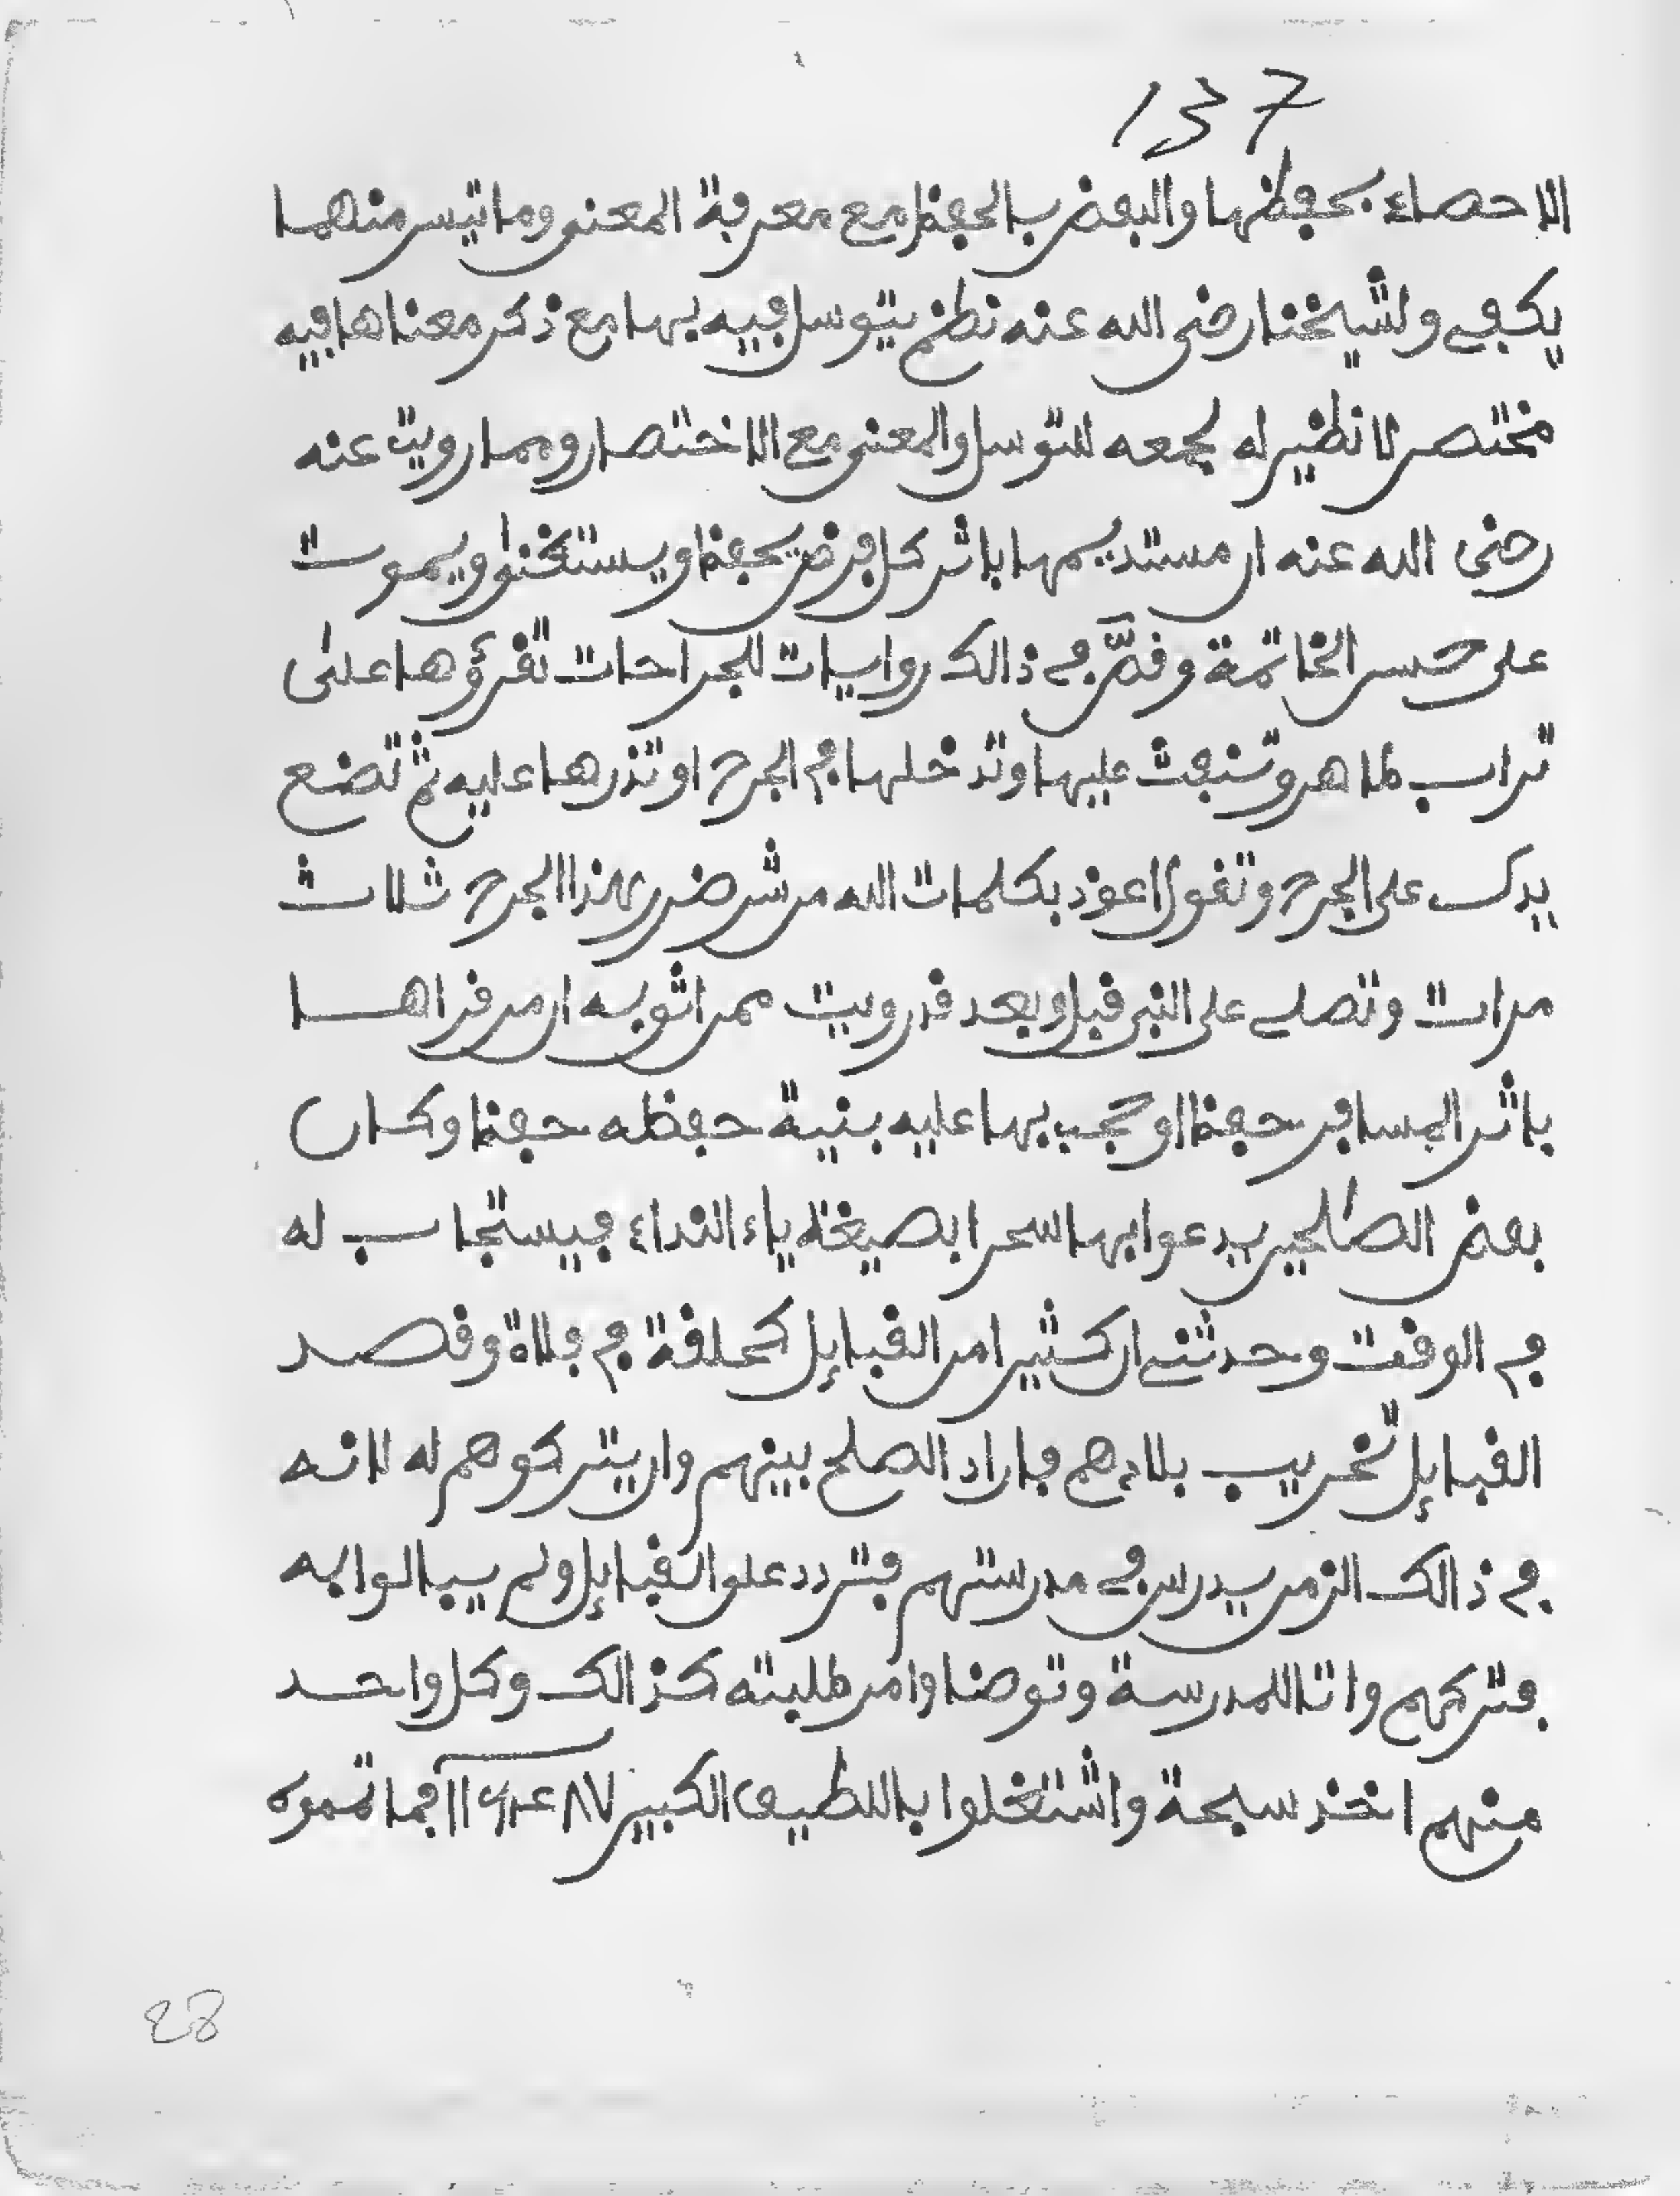 137
الاحصاء بحفظها والبعض بالحفظ مع معرفة المعنى وما تيسر منهما
يكفى ولشيخنا رضى الله عنه نظم يتوسل فيه بها مع ذكر معناها فيه
مختصر لا نظير له لجمعه للتوسل والمعنى مع الاختصار ومما رويت عنه
رضى الله عنه ان مستديمها باثر كل فرض يحفظ ويستغنى ويموت
على حسن الخاتمة وقص فى ذالك روايات للجراحات تقرؤها على
تراب طاهر وتنفث عليها وتدخلها فى الجرح او تذرها عليه ثم تضع
يدك على الجرح وتقول اعوذ بكلمات الله من شر ضرر هذا الجرح ثلاث
مرات وتصلى على النبى قبل وبعد قد رويت ممن اثق به ان من قراها
باثر المسافر حفظ او حجب بها عليه بنية حفظه حفظ وكان
بعض الصالحين يدعوا بها سحرا بصيغة ياء النداء فيستجاب له
فى الوقت وحدثنى ان كثيرا من القبايل فى فلاة وقصد
القبايل تخريب بلادهم فاراد الصلح بينهم وان يتركوهم له لانه
فى ذالك الزمن يدرس فى مدرستهم فتردد على القبايل ولم يبالوا به
فتركهم واتا للمدرسة وتوضا وامر طلبته كذالك وكل واحد
منهم اخذ سبحة واشتغلوا باللطيف الكبير فما تمموه
28